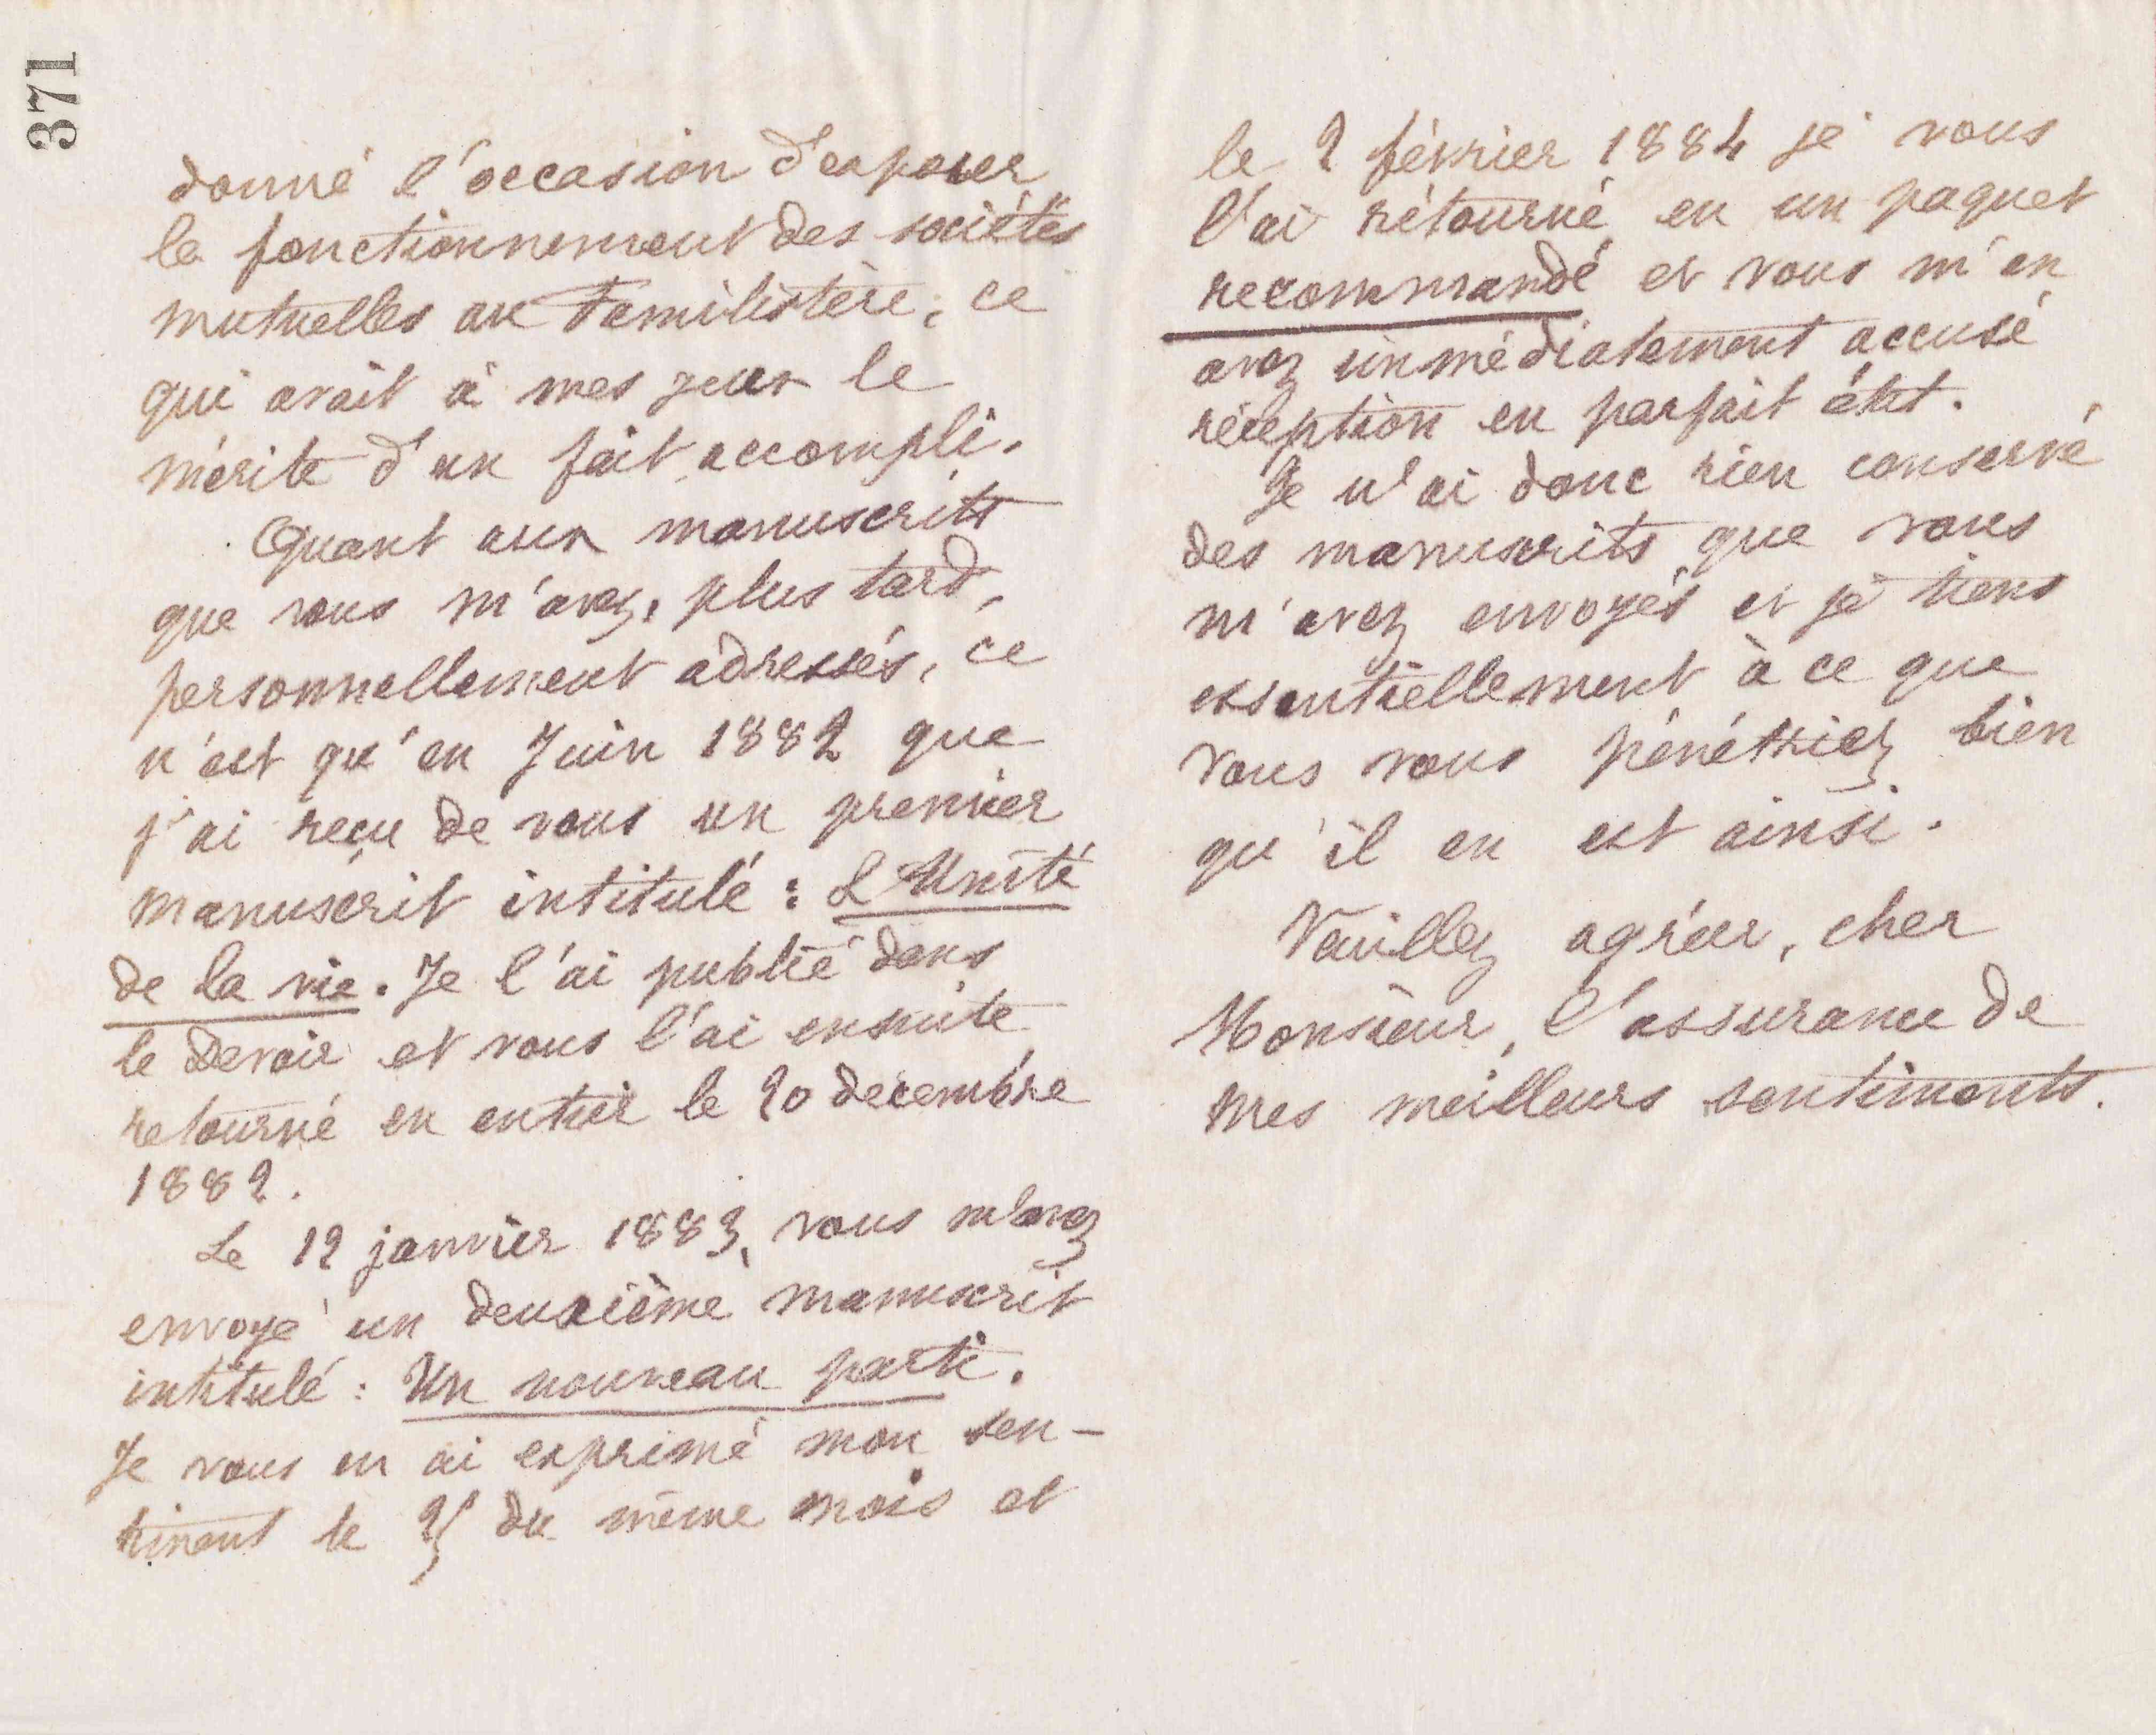 371
donné l'occasion d'exposer
le fonctionnement des sociétés
mutuelles au Familistère, ce
qui avait à mes yeux le
mérite d'un fait accompli.
Quant aux manuscrits
que vous m'avez, plus tard,
personnellement adressés, ce
n'est qu'en Juin 1882 que
j'ai reçu de vous un premier
manuscrit intitulé : L'Unité
de la vie. Je l'ai publié dans
le Devoir et vous l'ai ensuite
retourné en entier le 20 décembre
1882.
Le 12 janvier 1883, vous m'avez
envoyé un deuxième manuscrit
intitulé : Un nouveau parti.
Je vous en ai exprimé mon sen-
timent le 25 du même mois et
le 2 février 1884 je vous
l'ai retourné en un paquet
recommandé et vous m'en
avez immédiatement accusé
réception en parfait état.
Je n'ai donc rien conservé
des manuscrits que vous
m'avez envoyés et je tiens
essentiellement à ce que
vous vous pénétriez bien
qu'il en est ainsi.
Veuillez agréer, cher
Monsieur, l'assurance de
mes meilleurs sentiments.